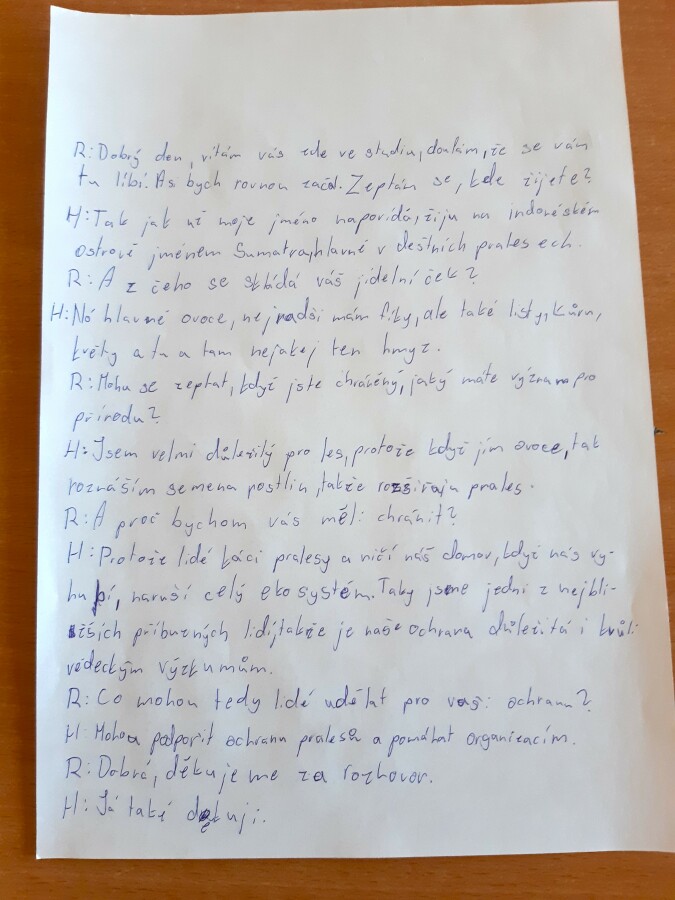 R: Dobrý den, vítám vás zde ve studiu, doufám, že se vám
tu líbí. As bych rovnou začal. Zeptám se, kde žijete?
H: Tak jak už moje jméno napovídá, žiju na indonéském
ostrově jménem Sumatra, hlavně v deštních pralesech.
R: A z čeho se skládá váš jídelníček?
H: Nó hlavně ovoce, nejradši mám fíky, ale také listy, kůru,
květy a tu a tam nejakej ten hmyz.
R: Mohu se zeptat, když jste chráněný, jaký máte význam pro
přírodu?
H: Jsem velmi důležitý pro les, protože když jím ovoce, tak
roznáším semena rostlin, takže rozšiřuju prales.
R: A proč bychom vás měli chránit?
H: Protože lidé kácí pralesy a ničí náš domov, když nás vy-
hubí, naruší celý ekosystém. Taky jsme jedni z nejbli-
žších příbuzných lidí, takže je naše ochrana důležitá i kvůli
vědeckým výzkumům.
R: Co mohou tedy lidé udělat pro vaši ochranu?
H: Mohou podpořit ochranu pralesů a pomáhat organizacím.
R: Dobrá, děkujeme za rozhovor.
H: Já také děkuji.